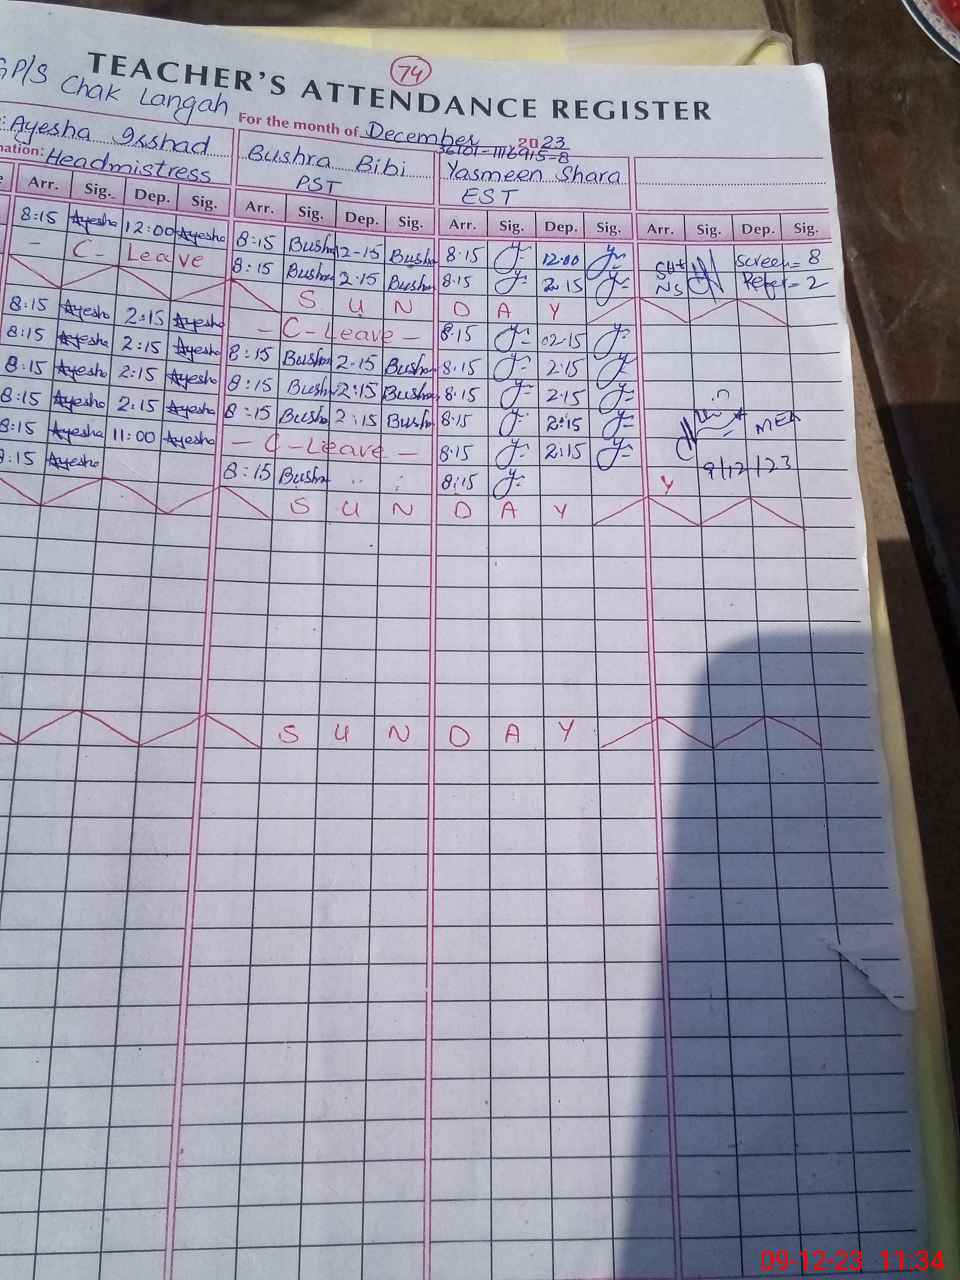 74
TEACHER'S ATTENDANCE REGISTER
GP/S Chak Langah
For the month of December 2023
: Ayesha Isshad
36101-1116915-8
Bushra Bibi Yasmeen Shara
nation: Headmistress PST EST
Arr. Sig. Dep. Sig. Arr. Sig. Dep. Sig. Arr. Sig. Dep. Sig. Arr. Sig. Dep. Sig.
8:15 Ayesha 12:00 Ayesha 8:15 Bushra 12-15 Bushra 8.15 12.00 Screen = 8
- C- Leave 8:15 Bushra 2.15 Bushra 8.15 2.15 NS Refer = 2
S U N D A Y
8:15 Ayesha 2:15 Ayesha - C-Leave - 8.15 02-15
8:15 Ayesha 2:15 Ayesha 8:15 Bushra 2.15 Bushra 8.15 2.15
8:15 Ayesha 2:15 Ayesha 8:15 Bushra 2:15 Bushra 8.15 2.15
8:15 Ayesha 2:15 Ayesha 8:15 Bushra 2:15 Bushra 8.15 2:15 MEA
8:15 Ayesha 11:00 Ayesha - C-Leave - 8.15 2:15
8:15 Ayesha 8:15 Bushra 8:15 9/12/23
S U N D A Y
S U N D A Y
09-12-23 11:34